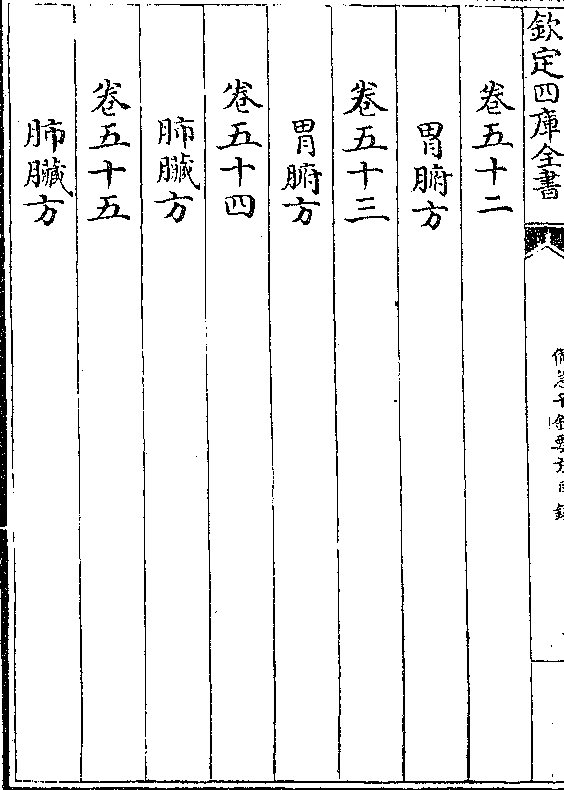 欽定四庫全書
備急千金要方目錄
卷五十二
胃腑方
卷五十三
胃腑方
卷五十四
肺臟方
卷五十五
肺臟方